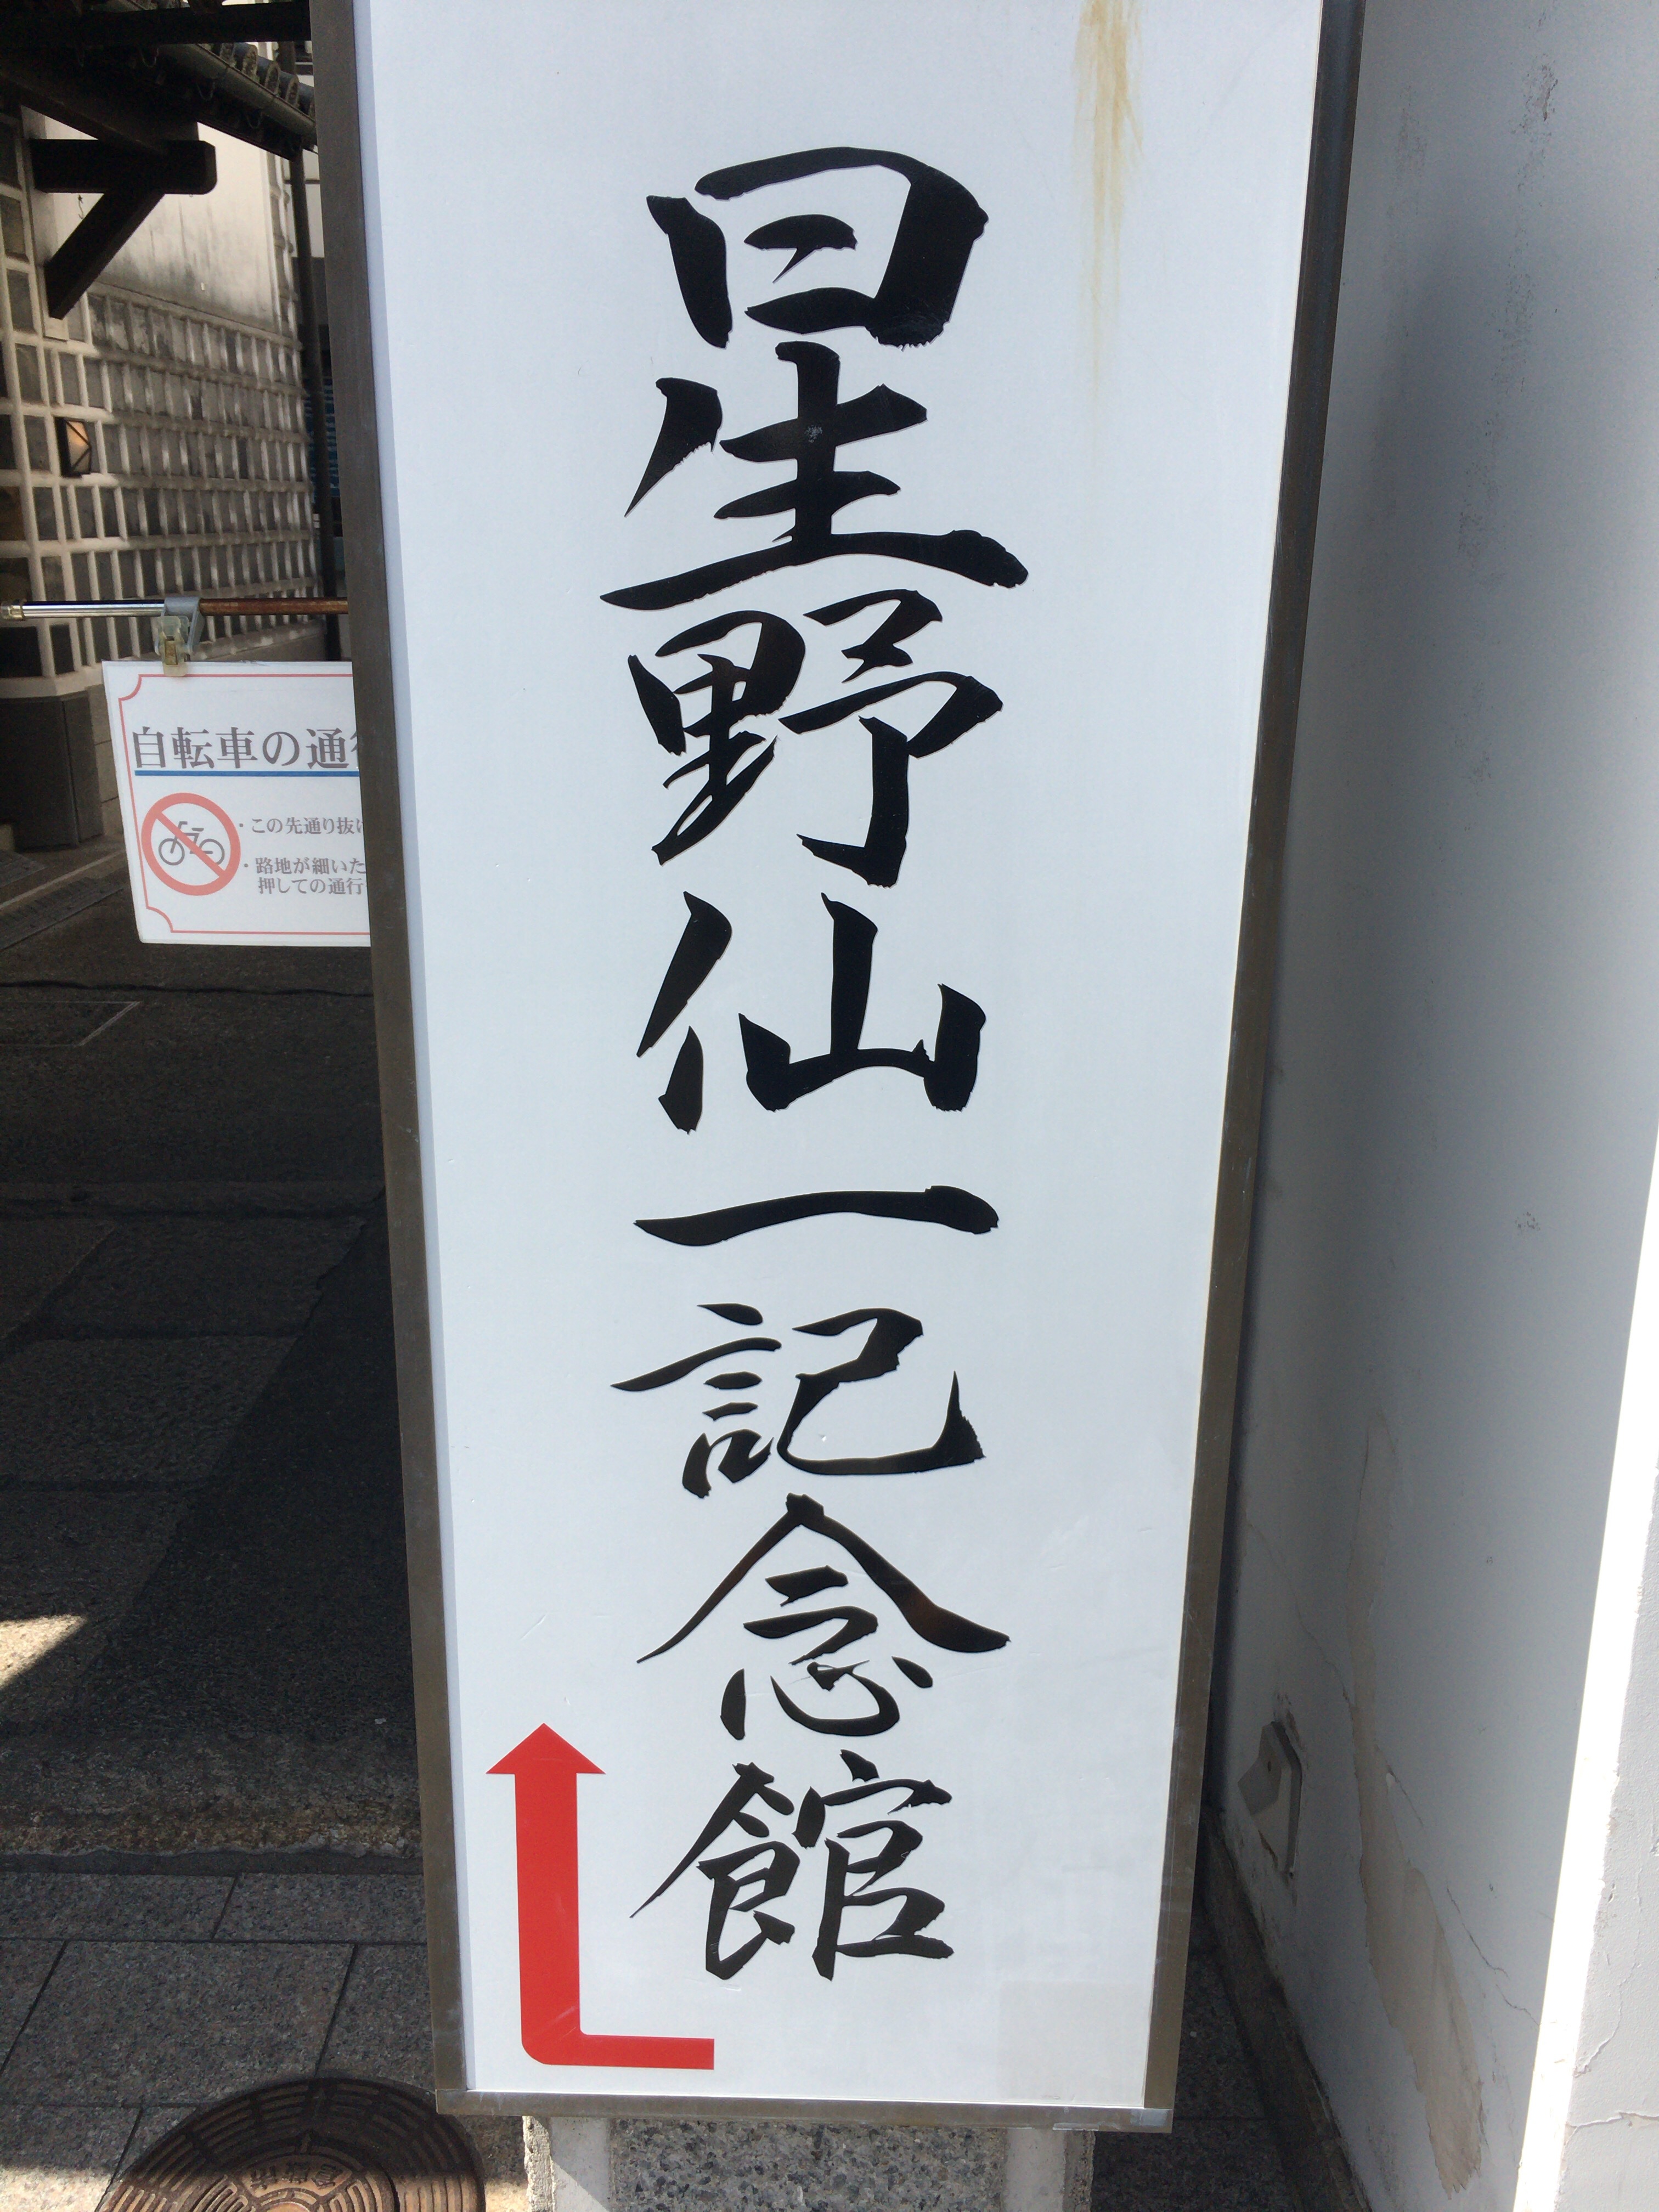 星野仙一記念館
自転車の通
・この先通り抜
・路地が細いた
押しての通行